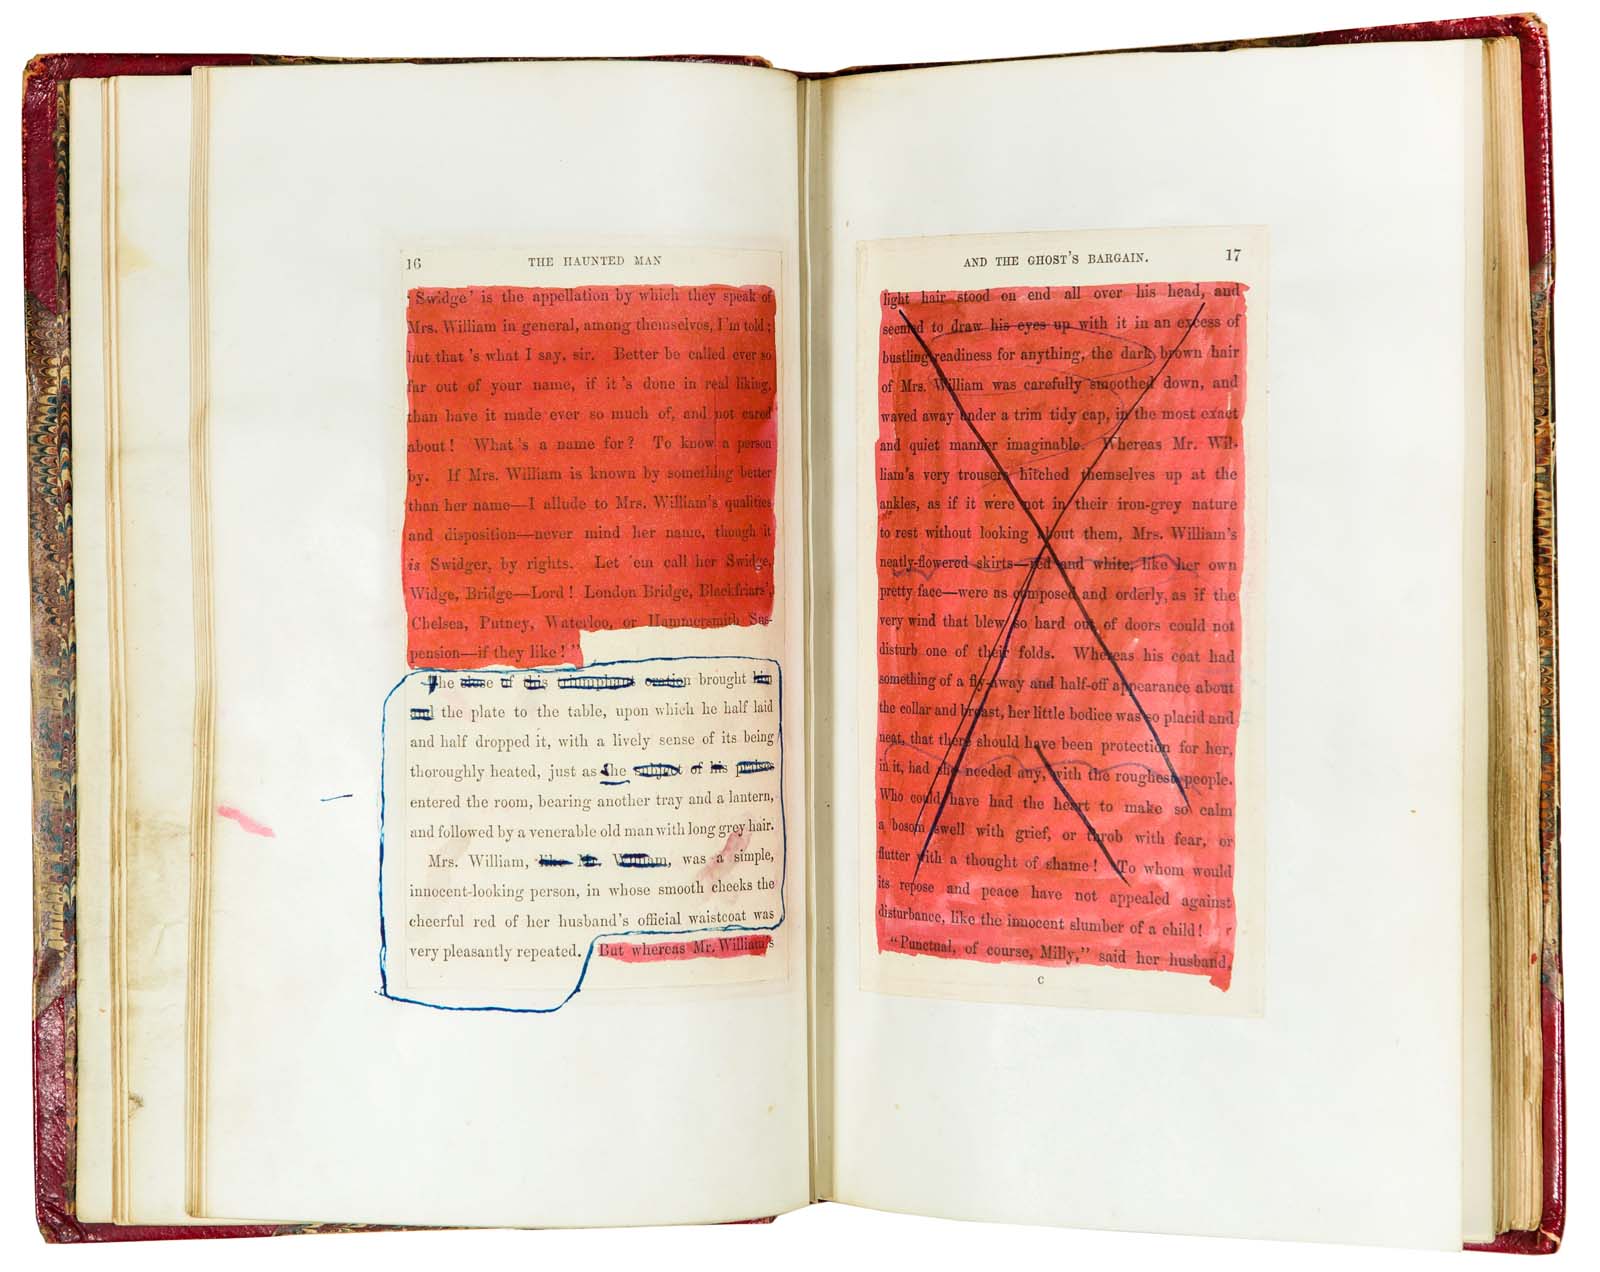 16 THE HAUNTED MAN
'Swidge' is the appellation by which they speak of
Mrs. William in general, among themselves, I'm told;
but that's what I say, sir. Better be called ever so
far out of your name, if it's done in real liking,
than have it made ever so much of, and not cared
about! What's a name for? To know a person
by. If Mrs. William is known by something better
than her name—I allude to Mrs. William's qualities
and disposition—never mind her name, though it
is Swidger, by rights. Let 'em call her Swidge,
Widge, Bridge—Lord! London Bridge, Blackfriars',
Chelsea, Putney, Waterloo, or Hammersmith Sus-
pension—if they like!"
The close of this triumphant oration brought him
and the plate to the table, upon which he half laid
and half dropped it, with a lively sense of its being
thoroughly heated, just as the subject of his praises
entered the room, bearing another tray and a lantern,
and followed by a venerable old man with long grey hair.
Mrs. William, like Mr. William, was a simple,
innocent-looking person, in whose smooth cheeks the
cheerful red of her husband's official waistcoat was
very pleasantly repeated. But whereas Mr. William's
AND THE GHOST'S BARGAIN. 17
light hair stood on end all over his head, and
seemed to draw his eyes up with it in an excess of
bustling readiness for anything, the dark brown hair
of Mrs. William was carefully smoothed down, and
waved away under a trim tidy cap, in the most exact
and quiet manner imaginable. Whereas Mr. Wil-
liam's very trousers hitched themselves up at the
ankles, as if it were not in their iron-grey nature
to rest without looking about them, Mrs. William's
neatly-flowered skirts—red and white, like her own
pretty face—were as composed and orderly, as if the
very wind that blew so hard out of doors could not
disturb one of their folds. Whereas his coat had
something of a fly-away and half-off appearance about
the collar and breast, her little bodice was so placid and
neat, that there should have been protection for her,
in it, had she needed any, with the roughest people.
Who could have had the heart to make so calm
a bosom swell with grief, or throb with fear, or
flutter with a thought of shame! To whom would
its repose and peace have not appealed against
disturbance, like the innocent slumber of a child!
"Punctual, of course, Milly," said her husband,
C